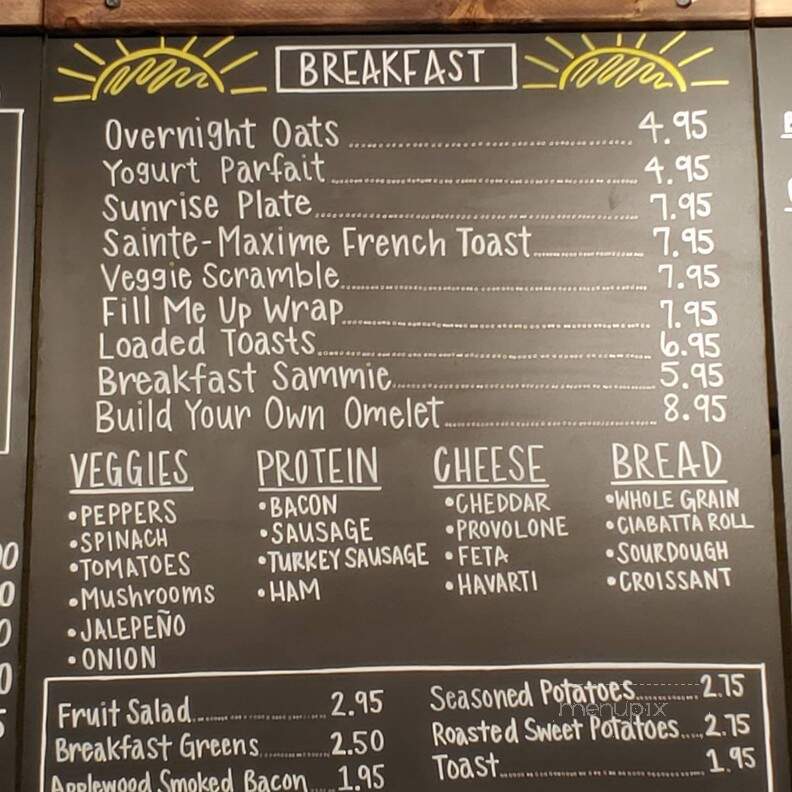 BREAKFAST
Overnight Oats 4.95
Yogurt Parfait 4.95
Sunrise Plate 7.95
Sainte-Maxime French Toast 7.95
Veggie Scramble 7.95
Fill Me Up Wrap 7.95
Loaded Toasts 6.95
Breakfast Sammie 5.95
Build Your Own Omelet 8.95
VEGGIES
•PEPPERS
•SPINACH
•TOMATOES
•Mushrooms
•JALEPEÑO
•ONION
PROTEIN
•BACON
•SAUSAGE
•TURKEY SAUSAGE
•HAM
CHEESE
•CHEDDAR
•PROVOLONE
•FETA
•HAVARTI
BREAD
•WHOLE GRAIN
•CIABATTA ROLL
•SOURDOUGH
•CROISSANT
Fruit Salad 2.95
Breakfast Greens 2.50
Applewood Smoked Bacon 1.95
Seasoned Potatoes 2.75
Roasted Sweet Potatoes 2.75
Toast 1.95
menupix